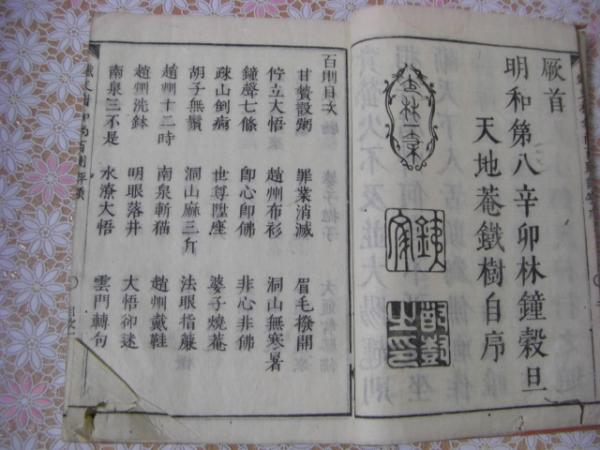 厥首
明和第八辛卯林鐘穀旦
天地菴鐵樹自序
百則目次
甘贄設粥　罪業消滅　眉毛撥開
佇立大悟　趙州布衫　洞山無寒暑
鐘聲七條　即心即佛　非心非佛
疎山倒瘸　世尊陞座　婆子燒菴
胡子無鬚　洞山麻三斤　法眼指簾
趙州十二時　南泉斬猫　趙州戴鞋
趙州洗鉢　明眼落井　大悟却迷
南泉三不是　水潦大悟　雲門轉句